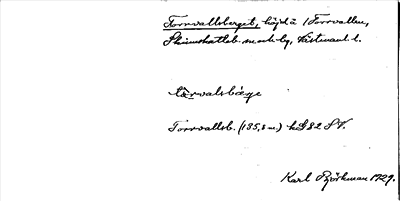 Torrvallsberget, höjd å Torrvallen,
Skinnskatteb. sn och bg, Västmanl. l.
tòrvalsbæ̀rje
Torrvallsb. (135,8 m.) kG 82 SV.
Karl Björkman 1929.